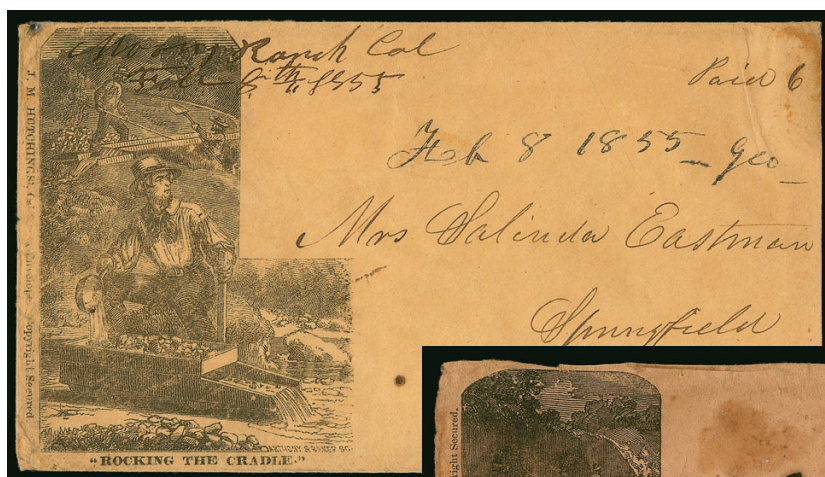 Moon's Ranch Cal
Feb 8th 1855
Paid 6
Feb 8 1855 _ Geo _
Mrs Salinda Eastman
Springfield
J. M. HUTCHINGS'
Copyright Secured
ANTHONY & BAKER SC.
"ROCKING THE CRADLE."
right Secured.